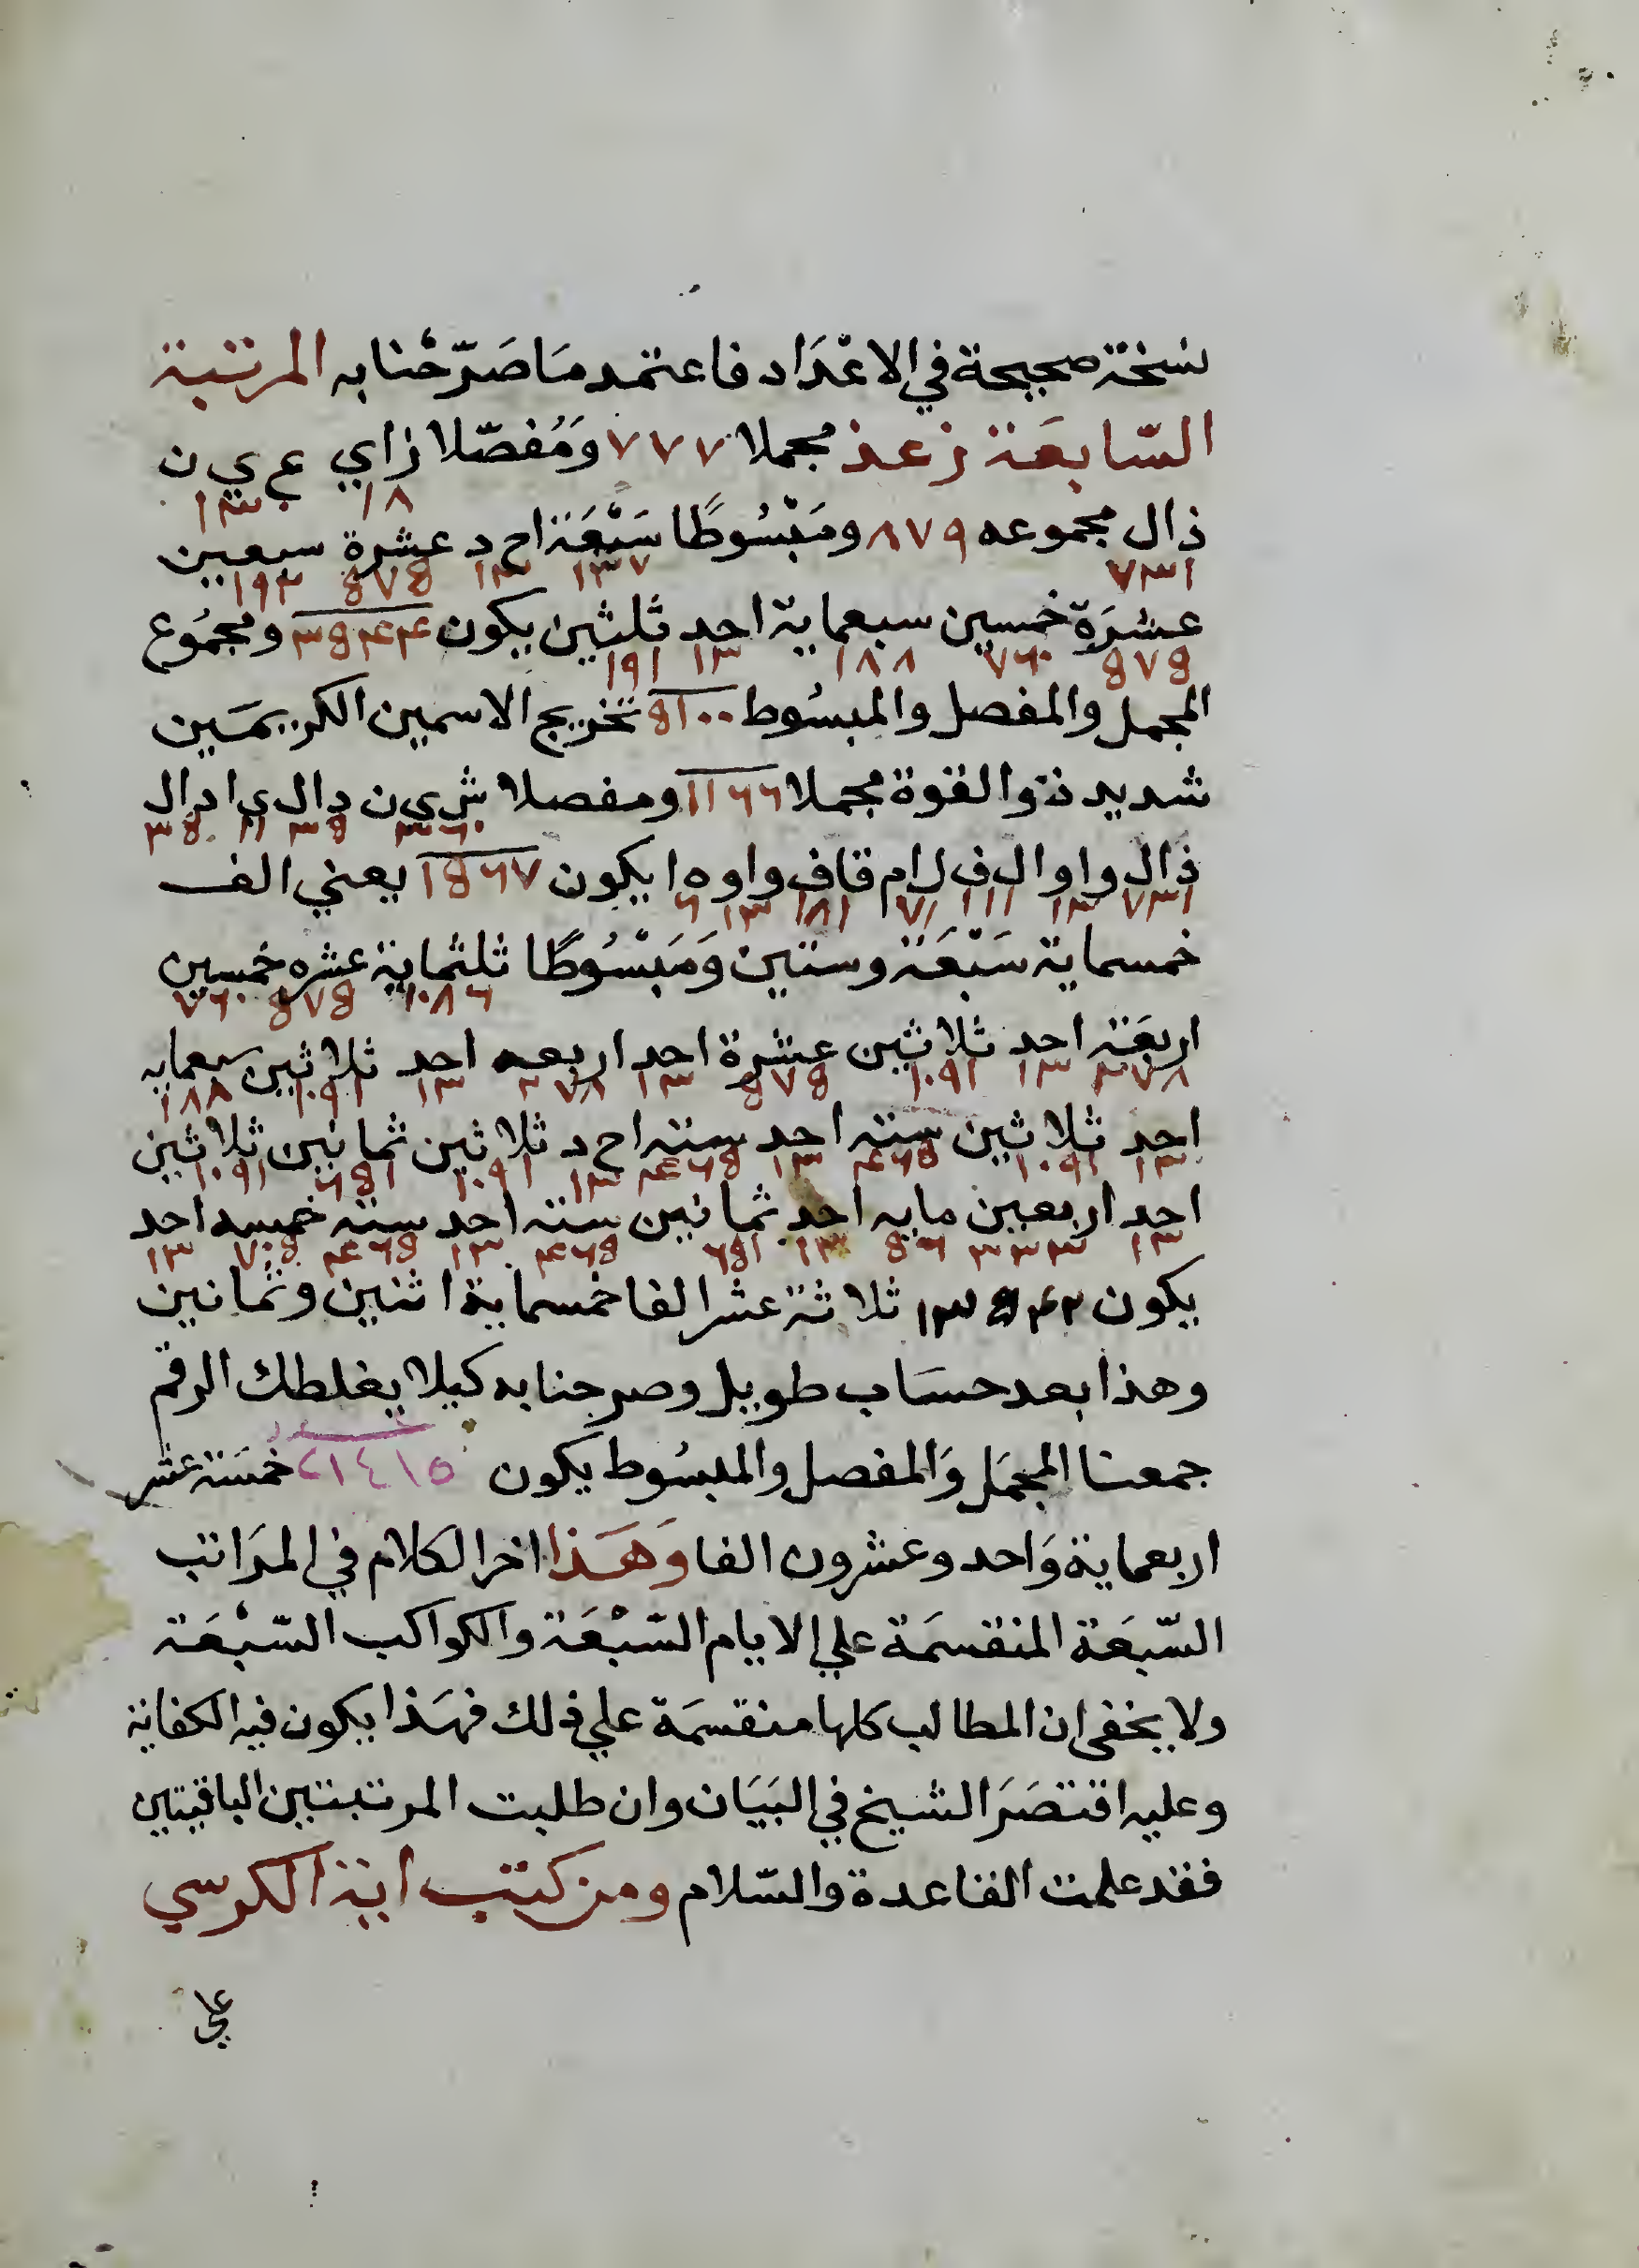 نسخة صحيحة في الاعْدَاد فاعتمد مَا صَرّحْنا به المرتبة
السّابعَة زعذ مجملا ٧٧٧ وَمُفصّلا زاي ع ي ن
١٨ ١٣٠
ذال مجموعه ٨٧٩ ومَبْسُوطًا سَبْعَة اح د عشرة سبعين
٧٣١ ١٣٧ ١٣ ٥٧٥ ١٩٢
عشرَة خمسين سبعماية احد ثلثين يكون ٣٥٤٤ ومجموع
٥٧٥ ٧٦٠ ١٨٨ ١٣ ١٩١
المجمل والمفصل والمبسُوط ٥١٠٠ تخريج الاسمين الكريمَين
شديد ذو القوة مجملا ١١٦٦ ومفصلا ش ي ن دال ي ا دال
٣٦٠ ٣٥ ١١ ٣٥
ذال واو ال ف ل ام قاف واو ه ا يكون ١٥٦٧ يعني الف
٧٣١ ١٣ ١١١ ٧١ ١٨١ ١٣ ٦
خمسماية سَبْعَة وستين وَمَبْسُوطًا ثلثماية عشره خمسين
١٠٨٦ ٥٧٥ ٧٦٠
اربعَة احد ثلاثين عشرة احد اربعه احد ثلاثين سبعمايه
٢٧٨ ١٣ ١٠٩١ ٥٧٥ ١٣ ٢٧٨ ١٣ ١٠٩١ ١٨٨
احد ثلاثين سته احد سته اح د ثلاثين ثمانين ثلاثين
١٣ ١٠٩١ ٤٦٥ ١٣ ٤٦٥ ١٣ ١٠٩١ ٦٥١ ١٠٩١
احد اربعين مايه احد ثمانين سته احد سته خمسه احد
١٣ ٣٣٣ ٥٦ ١٣ ٦٥١ ٤٦٥ ١٣ ٤٦٥ ٧٠٥ ١٣
يكون ١٣٥٤٢ ثلاثة عشر الفا خمسماية اثنين وثمانين
وهذا بعد حسَاب طويل وصرحنا به كيلا يغلطك الرقم
جمعنا المجمَل وَالمفصل والمبسُوط يكون ٢١٤١٥ خمسَة عشر
اربعماية وَاحد وعشرون الفا وَهَذا اخر الكلام في المرَاتب
السّبعَة المنقسمَة علي الايام السّبْعَة والكواكب السّبْعَة
ولا يخفي ان المطالب كلها منقسمَة علي ذلك فهَذا يكون فيه الكفاية
وعليه اقتصَرَ الشيخ في البَيَان وان طلبت المرتبتين الباقيتين
فقد علمت القاعدة والسّلام ومن كتب اية الكرسي
علي